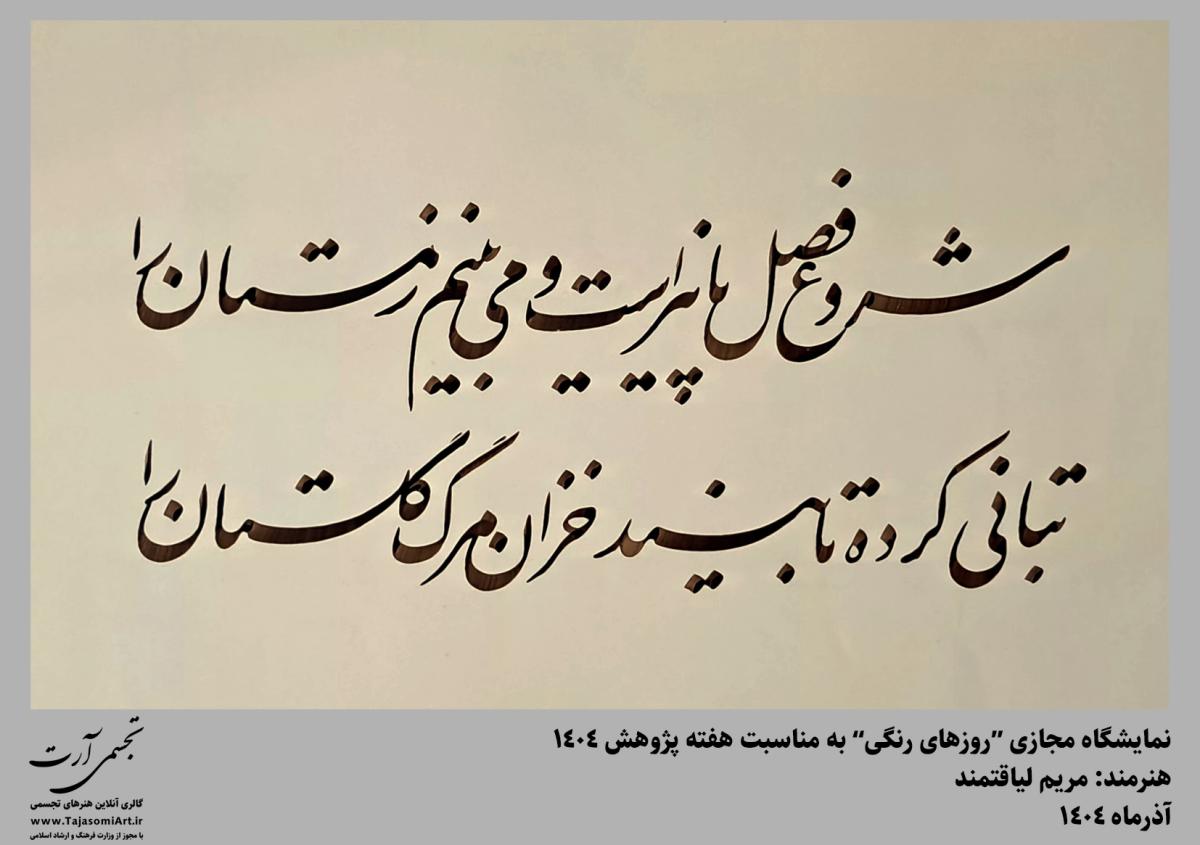 شروع فصل پاییز است و می بینم زمستان را
تبانی کرده تا بیند خزان مرگ گلستان را
نمایشگاه مجازی ”روزهای رنگی“ به مناسبت هفته پژوهش ۱۴۰۴
هنرمند: مریم لیاقتمند
آذرماه ۱۴۰۴
تجسمی آرت
گالری آنلاین هنرهای تجسمی
www.TajasomiArt.ir
با مجوز از وزارت فرهنگ و ارشاد اسلامی